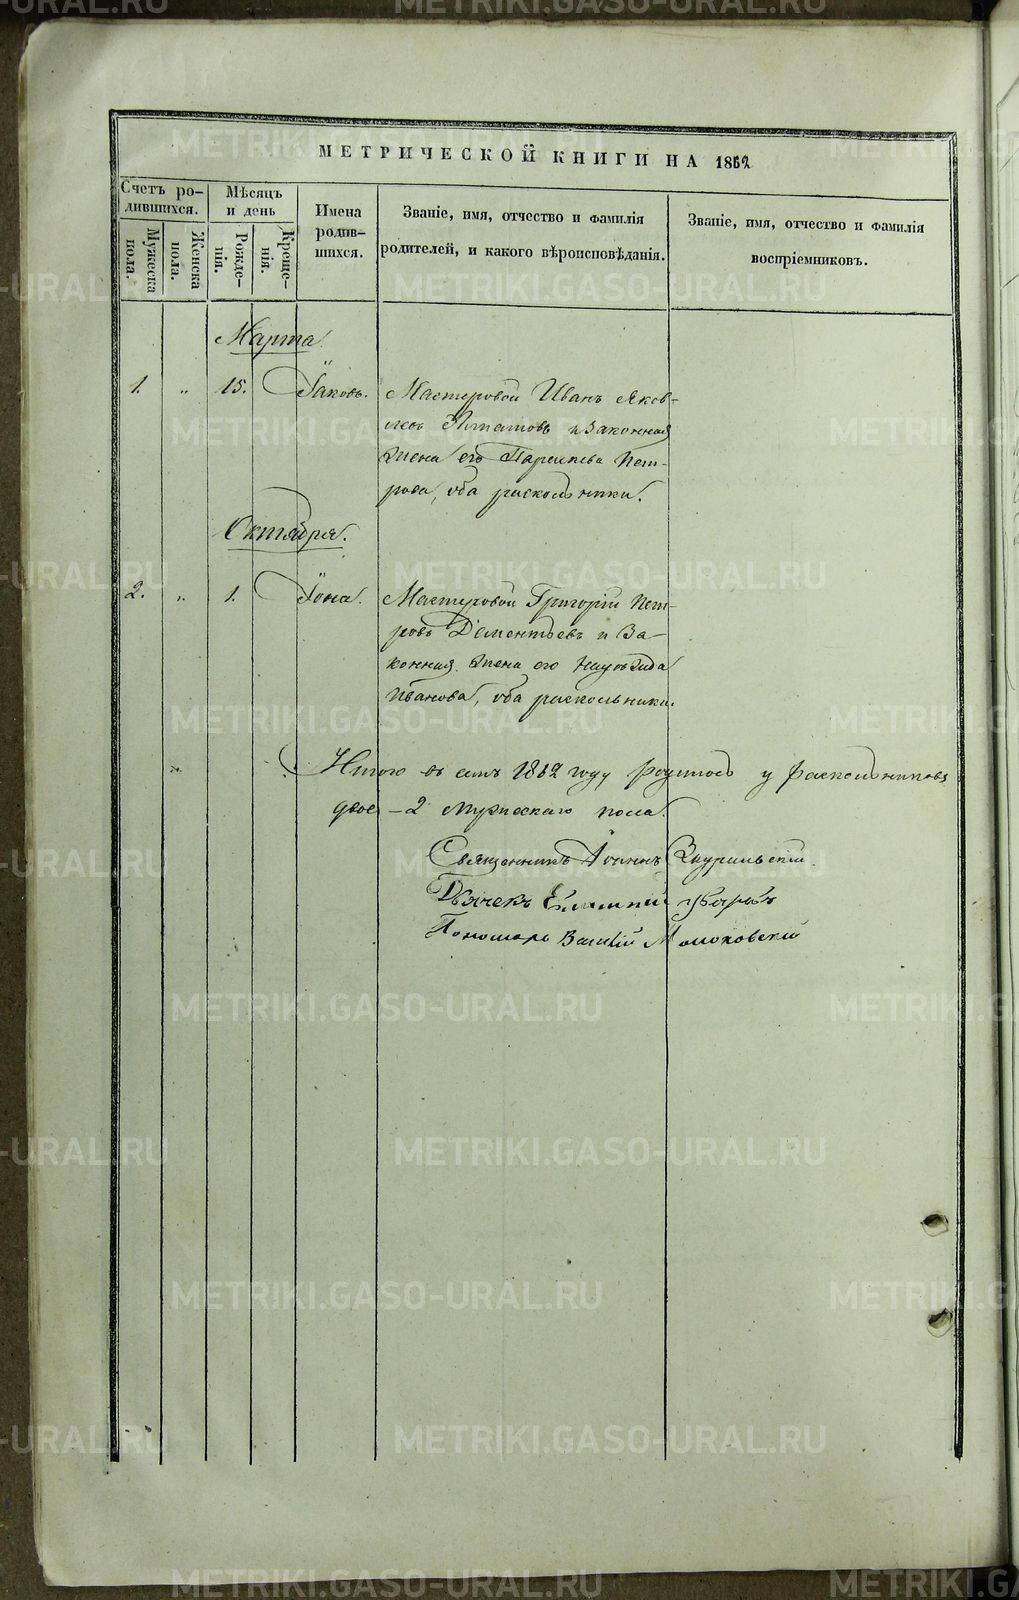 МЕТРИЧЕСКОЙ КНИГИ НА 1862
Счетъ ро-
дившихся.
Мужеска
пола.
Женска
пола.
Мѣсяцъ
и день
Рожде-
нія.
Креще-
нія.
Имена
родив-
шихся.
Званіе, имя, отчество и фамилія
родителей, и какого вѣроисповѣданія.
Званіе, имя, отчество и фамилія
воспріемниковъ.
Марта
1. " 15. Іаковъ. Мастеровой Иванъ Яков-
левъ и законная
жена его Параскева Пет-
рова, оба раскольники.
Октября.
2. " 1. Іона. Мастеровой Григорій Пет-
ровъ Дементьевъ и за-
конная жена его
Иванова, оба раскольники.
Итого въ семъ 1862 году родилось у раскольниковъ
двое – 2 мужескаго пола.
Священникъ Іоаннъ
Дьячекъ
Пономарь Василій
METRIKI.GASO-URAL.RU